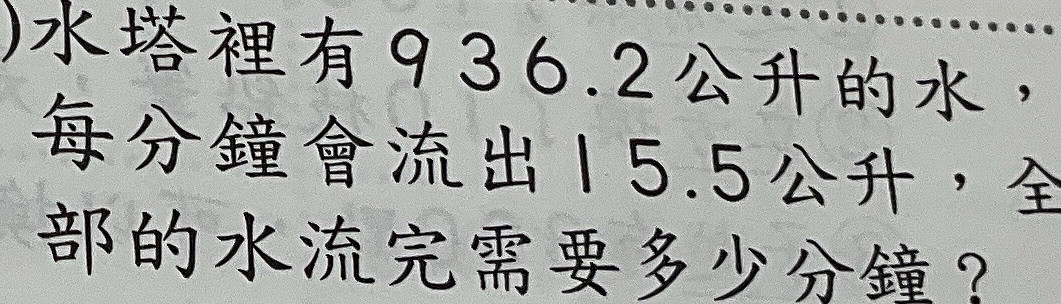 )水塔裡有936.2公升的水，
每分鐘會流出15.5公升，全
部的水流完需要多少分鐘？